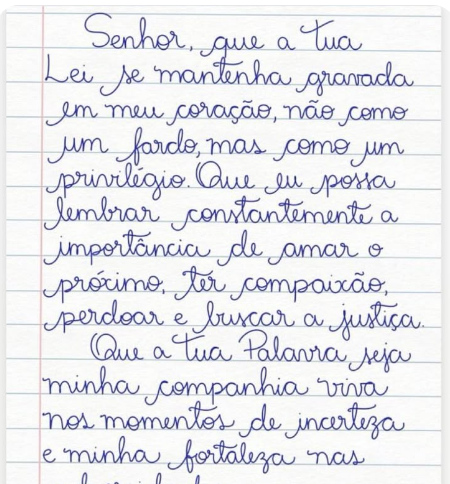 Senhor, que a tua
Lei se mantenha gravada
em meu coração, não como
um fardo, mas como um
privilégio. Que eu possa
lembrar constantemente a
importância de amar o
próximo, ter compaixão,
perdoar e buscar a justiça.
Que a tua Palavra seja
minha companhia viva
nos momentos de incerteza
e minha fortaleza nas